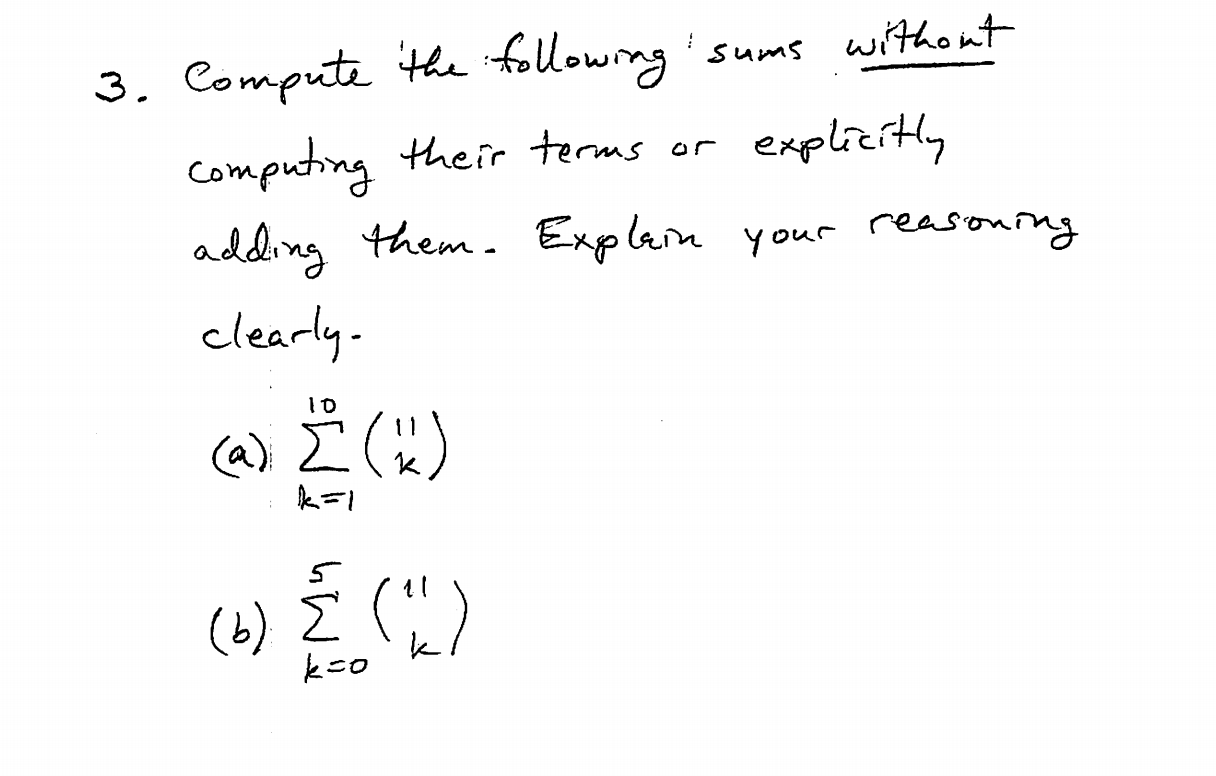 3. Compute the following sums without
computing their terms or explicitly
adding them. Explain your reasoning
clearly.
(a) $\sum_{k=1}^{10} \binom{11}{k}$
(b) $\sum_{k=0}^{5} \binom{11}{k}$